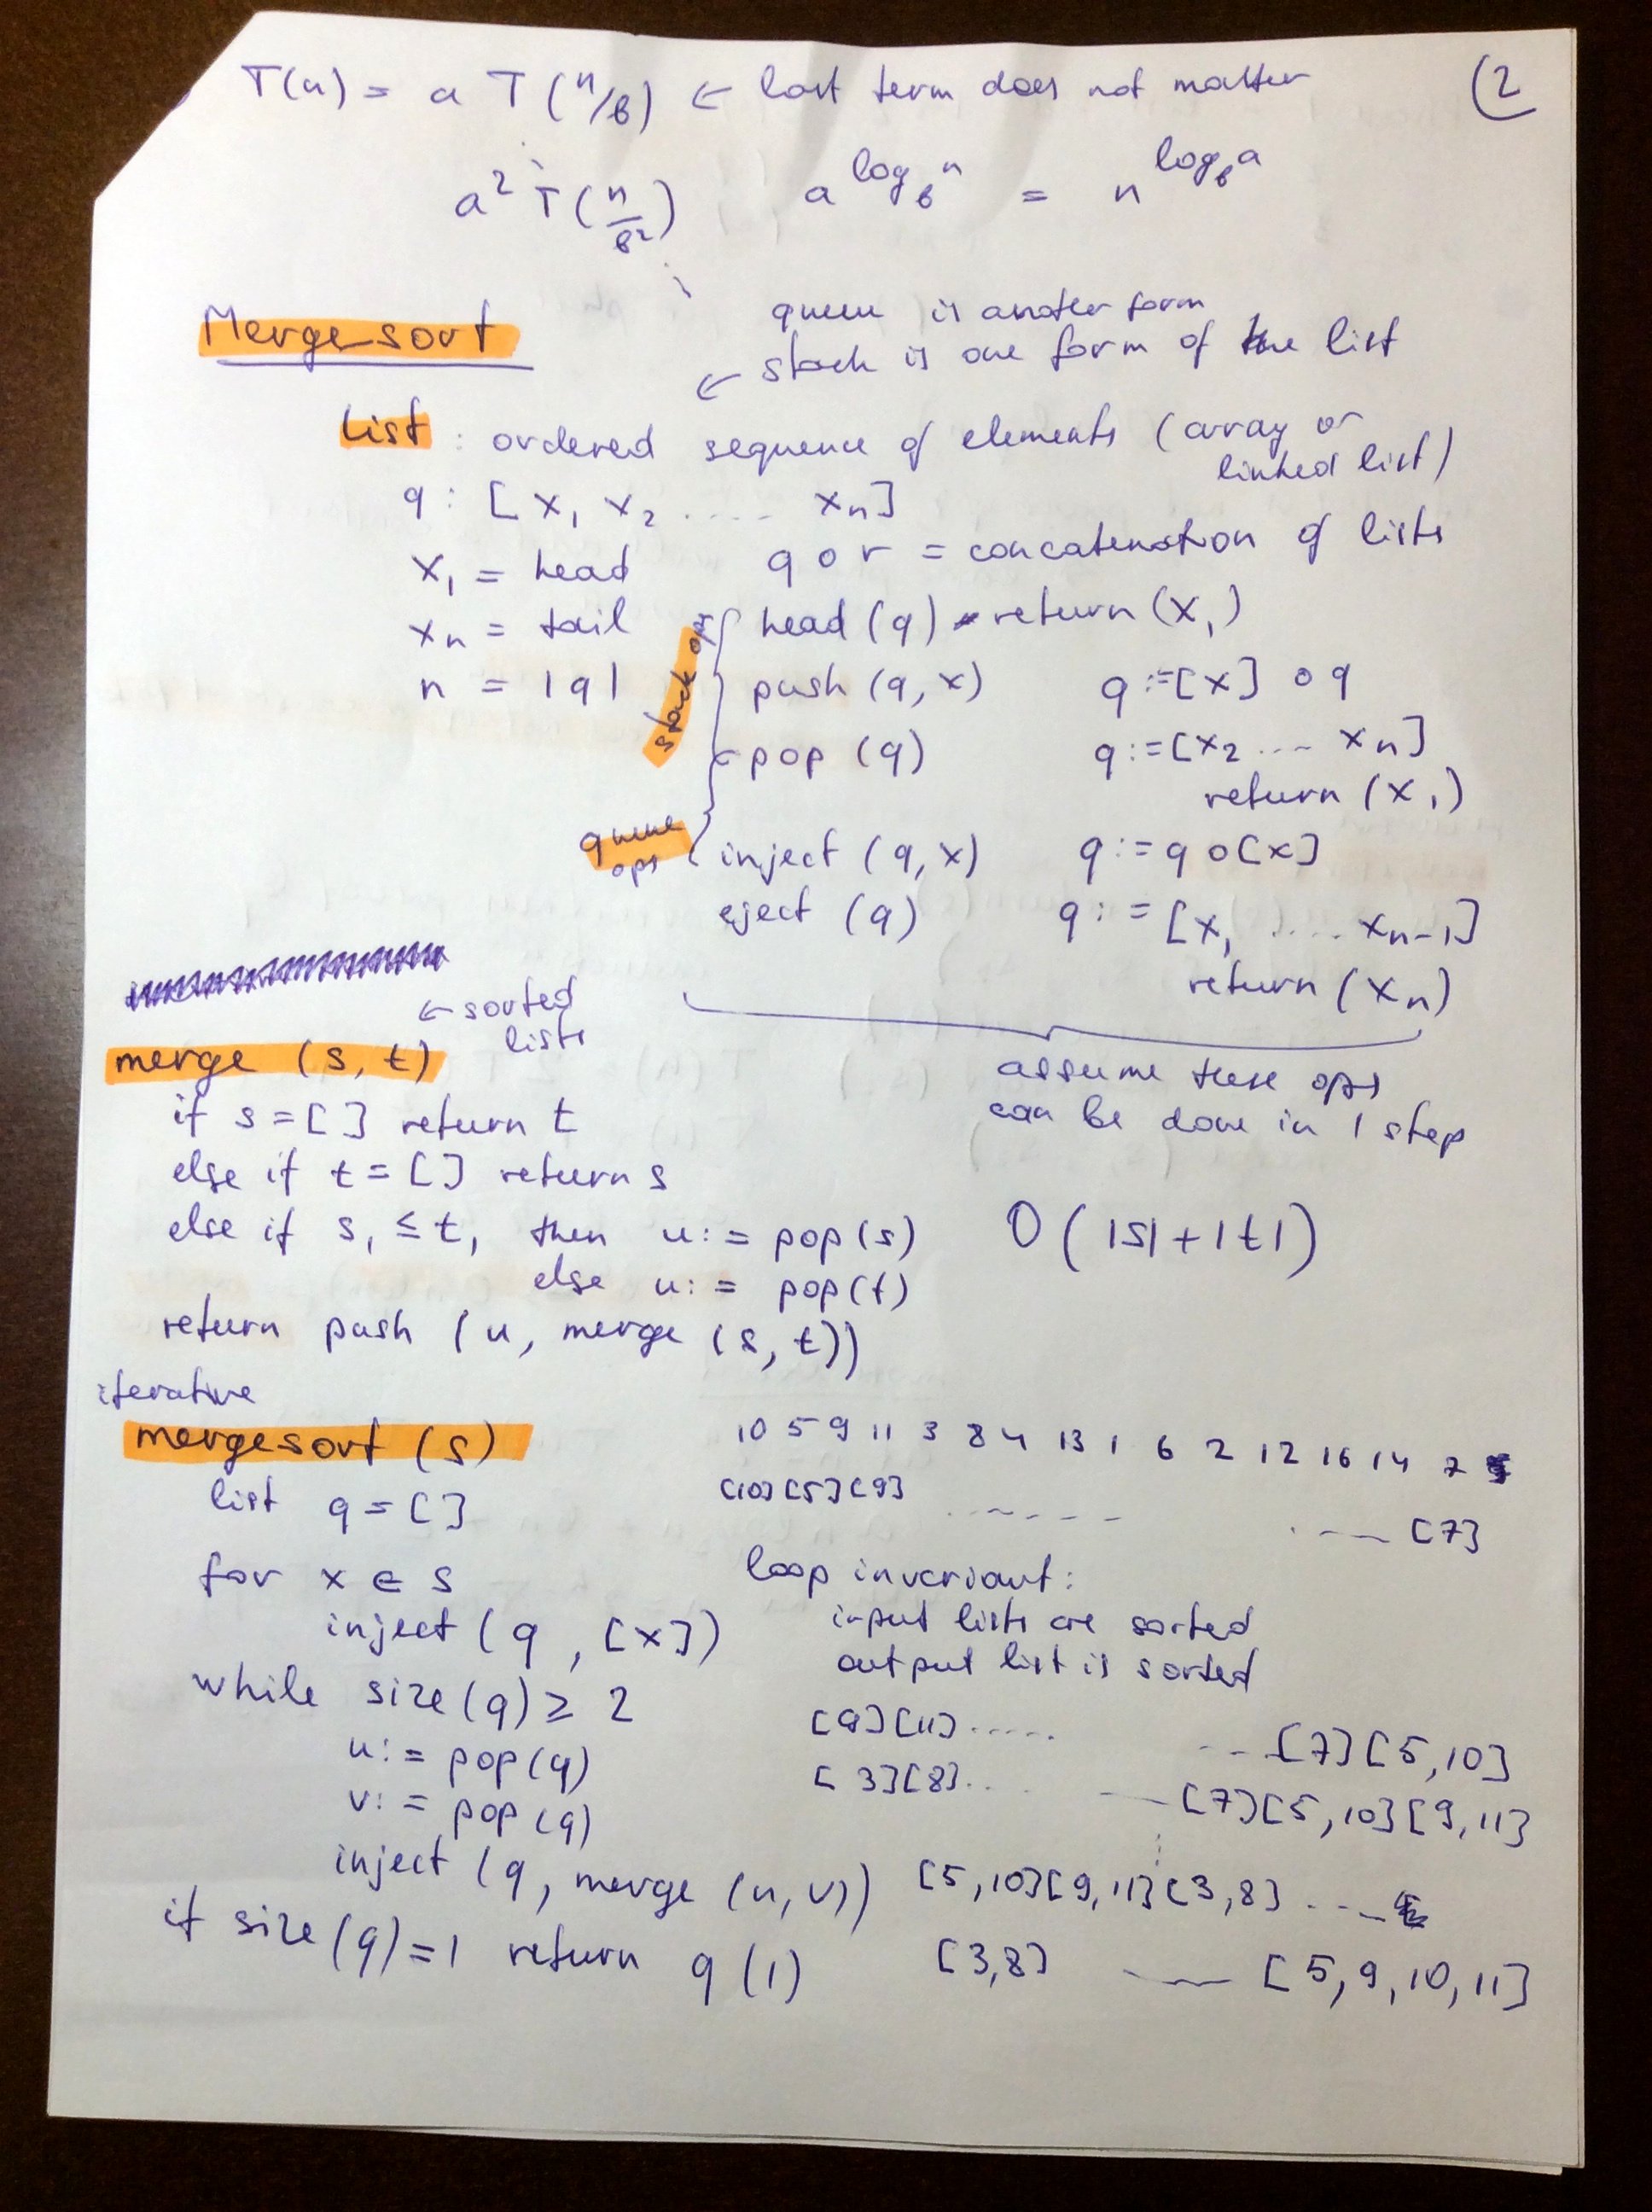 T(n) = a T(n/b) ← last term does not matter
(2
a² T(n/b²)   a^(log_b n) = n^(log_b a)
Mergesort
queue is another form
← stack is one form of the list
List : ordered sequence of elements (array or
linked list)
q : [x₁ x₂ .... xₙ]
x₁ = head   q ∘ r = concatenation of lists
xₙ = tail
n = |q|
stack ops
head (q) - return (x₁)
push (q, x)   q := [x] ∘ q
pop (q)   q := [x₂ ... xₙ]
return (x₁)
queue ops
inject (q, x)   q := q ∘ [x]
eject (q)   q := [x₁ ..... xₙ₋₁]
return (xₙ)
assume these ops
can be done in 1 step
← sorted
lists
merge (s, t)
if s = [ ] return t
else if t = [ ] return s
else if s₁ ≤ t₁ then u := pop(s)
else u := pop(t)
return push (u, merge (s, t))
O(|s| + |t|)
iterative
mergesort (s)
list q = [ ]
for x ∈ s
inject (q, [x])
while size (q) ≥ 2
u := pop (q)
v := pop (q)
inject (q, merge (u, v))
if size (q) = 1 return q (1)
10 5 9 11 3 8 4 13 1 6 2 12 16 14 7
[10] [5] [9] ------ ---- [7]
loop invariant:
input lists are sorted
output list is sorted
[9] [11] ..... --- [7] [5, 10]
[3] [8] .... ---- [7] [5, 10] [9, 11]
[5, 10] [9, 11] [3, 8] ....
[3, 8] ---- [5, 9, 10, 11]